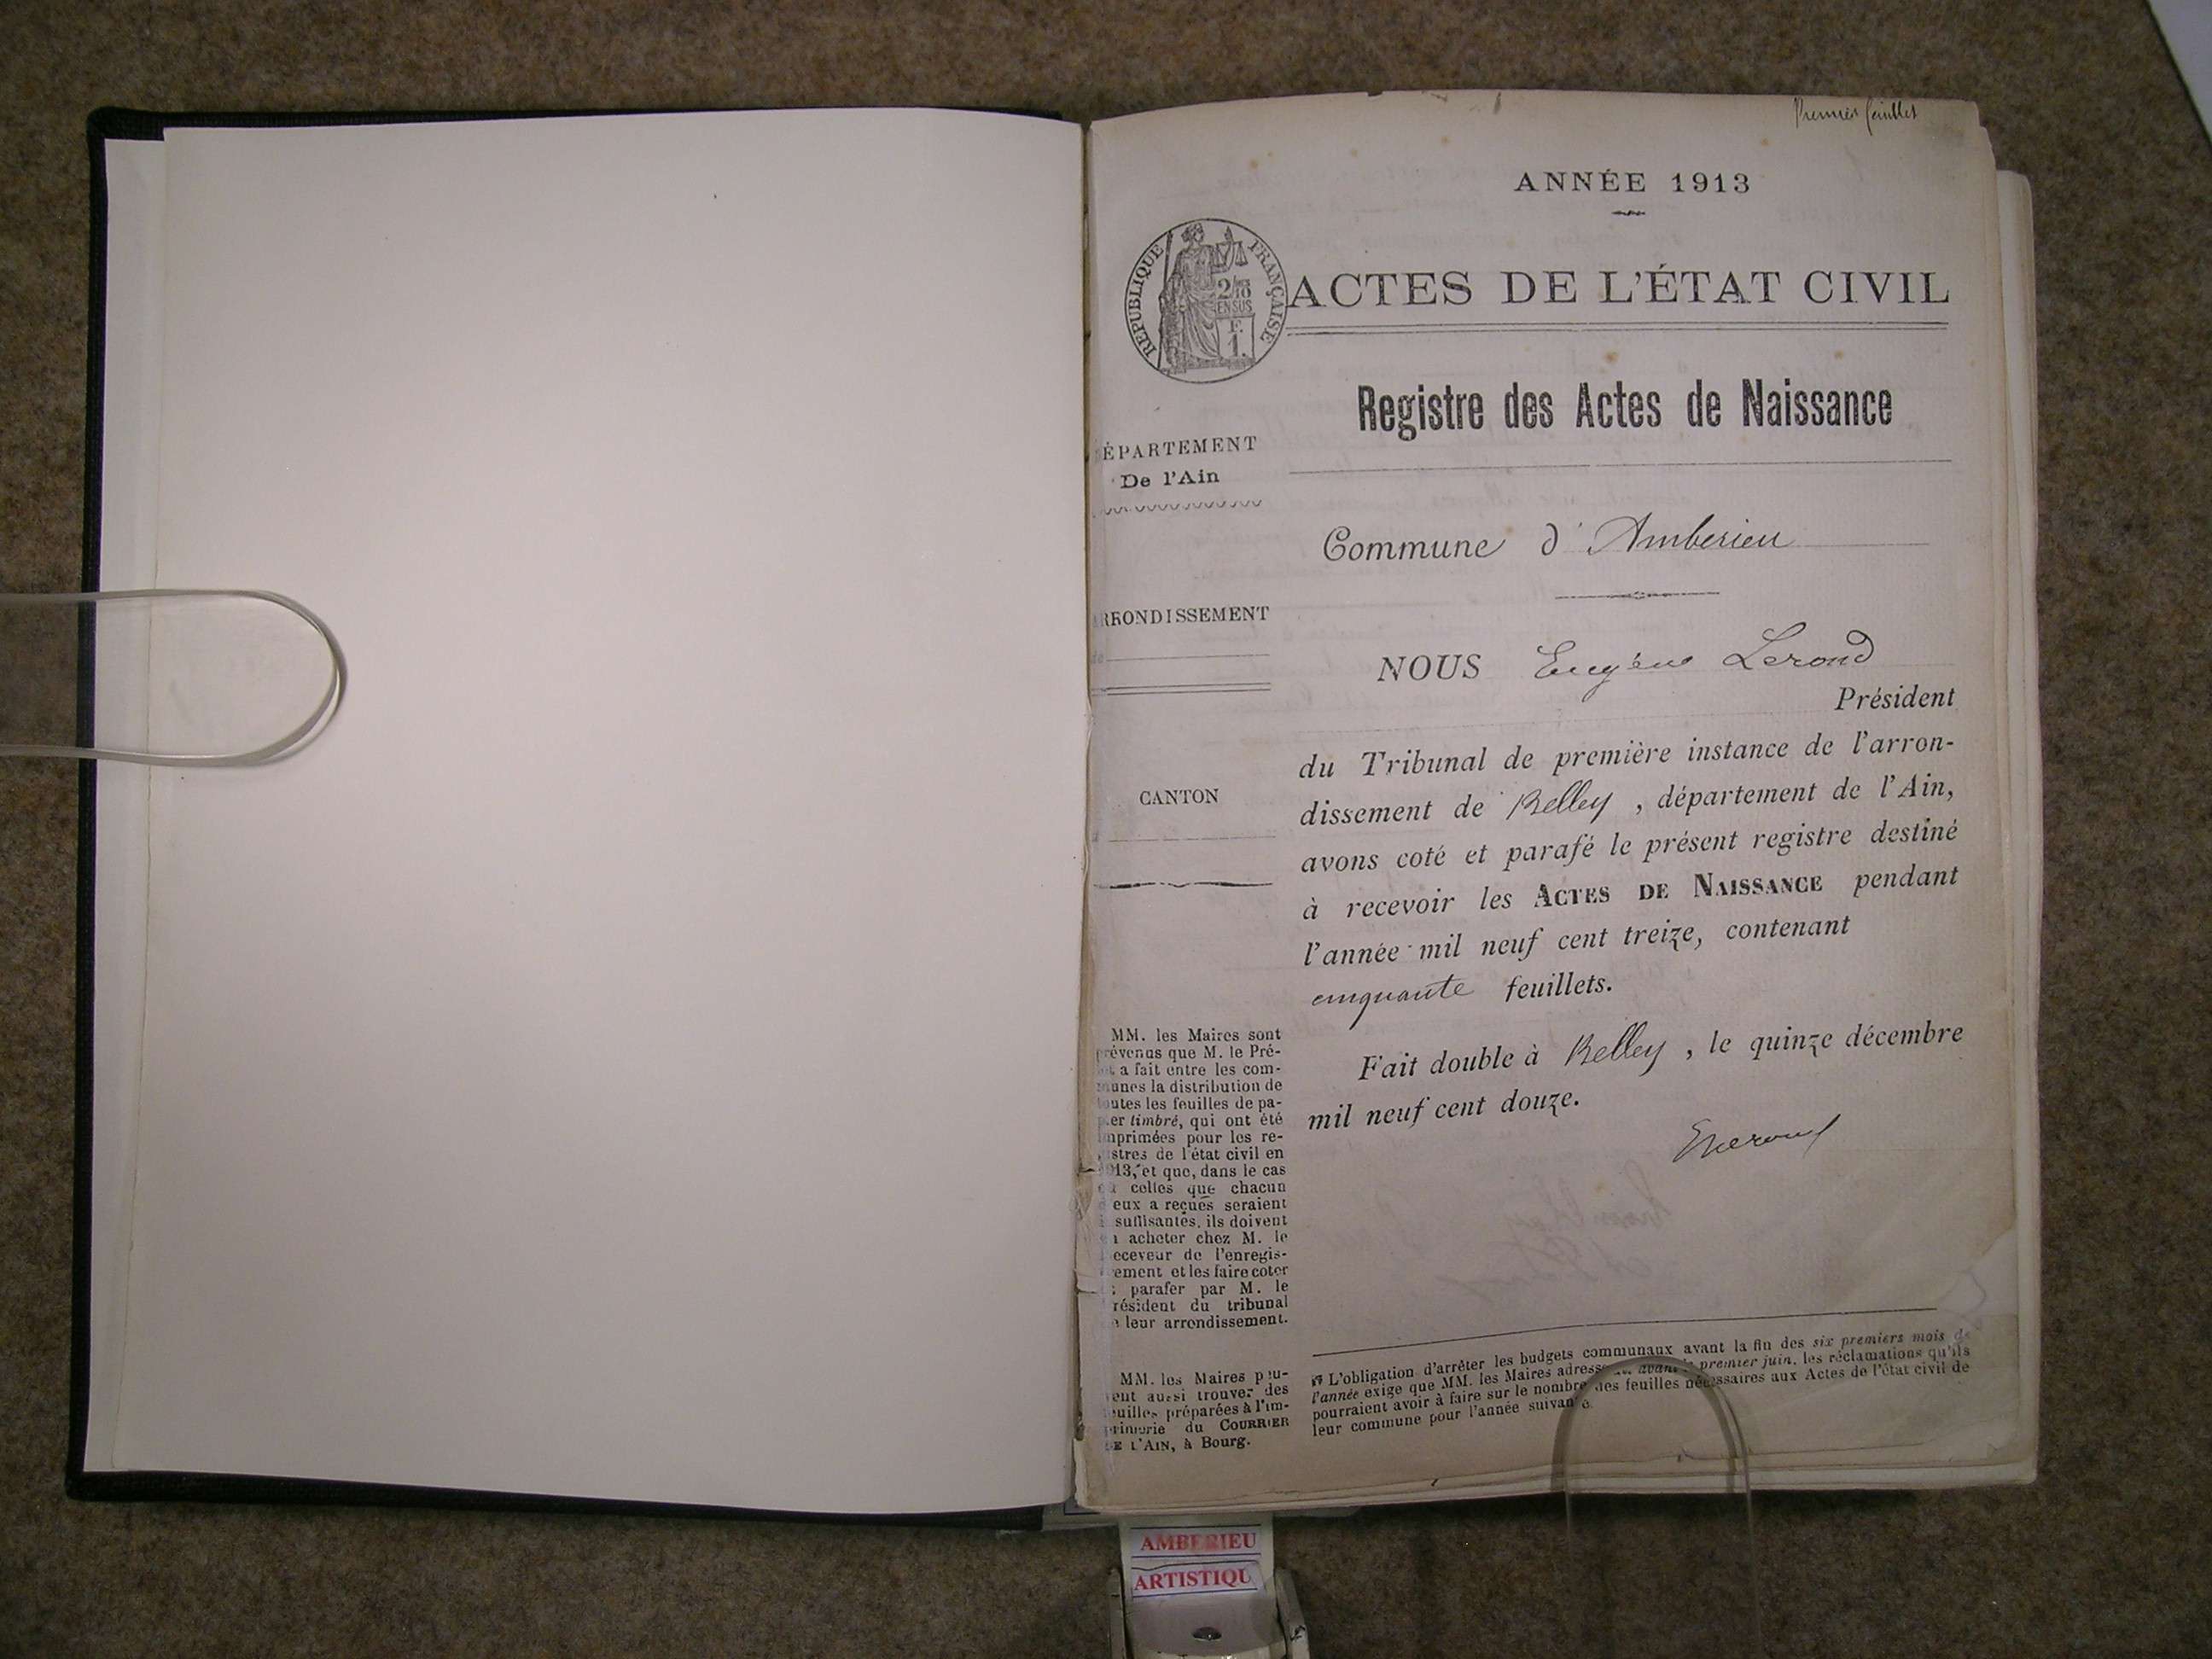 Premier feuillet
ANNÉE 1913
ACTES DE L'ÉTAT CIVIL
RÉPUBLIQUE FRANÇAISE
2/10
EN SUS
F.
1.
Registre des Actes de Naissance
ÉPARTEMENT
De l'Ain
Commune d'Amberieu
RRONDISSEMENT
NOUS Eugène Lerond
Président
du Tribunal de première instance de l'arron-
dissement de Belley, département de l'Ain,
avons coté et parafé le présent registre destiné
à recevoir les ACTES DE NAISSANCE pendant
l'année mil neuf cent treize, contenant
cinquante feuillets.
CANTON
Fait double à Belley, le quinze décembre
mil neuf cent douze.
MM. les Maires sont
prévenus que M. le Pré-
et a fait entre les com-
munes la distribution de
toutes les feuilles de pa-
ier timbré, qui ont été
mprimées pour les re-
istres de l'état civil en
913, et que, dans le cas
celles que chacun
eux a reçues seraient
suffisantes, ils doivent
acheter chez M. le
eceveur de l'enregis-
rement et les faire coter
parafer par M. le
résident du tribunal
leur arrondissement.
MM. les Maires peu-
ent aussi trouver des
euilles préparées à l'im-
primerie du COURRIER
DE L'AIN, à Bourg.
L'obligation d'arrêter les budgets communaux avant la fin des six premiers mois de
l'année exige que MM. les Maires adressent avant le premier juin, les réclamations qu'ils
pourraient avoir à faire sur le nombre des feuilles nécessaires aux Actes de l'état civil de
leur commune pour l'année suivante.
AMBERIEU
ARTISTIQU